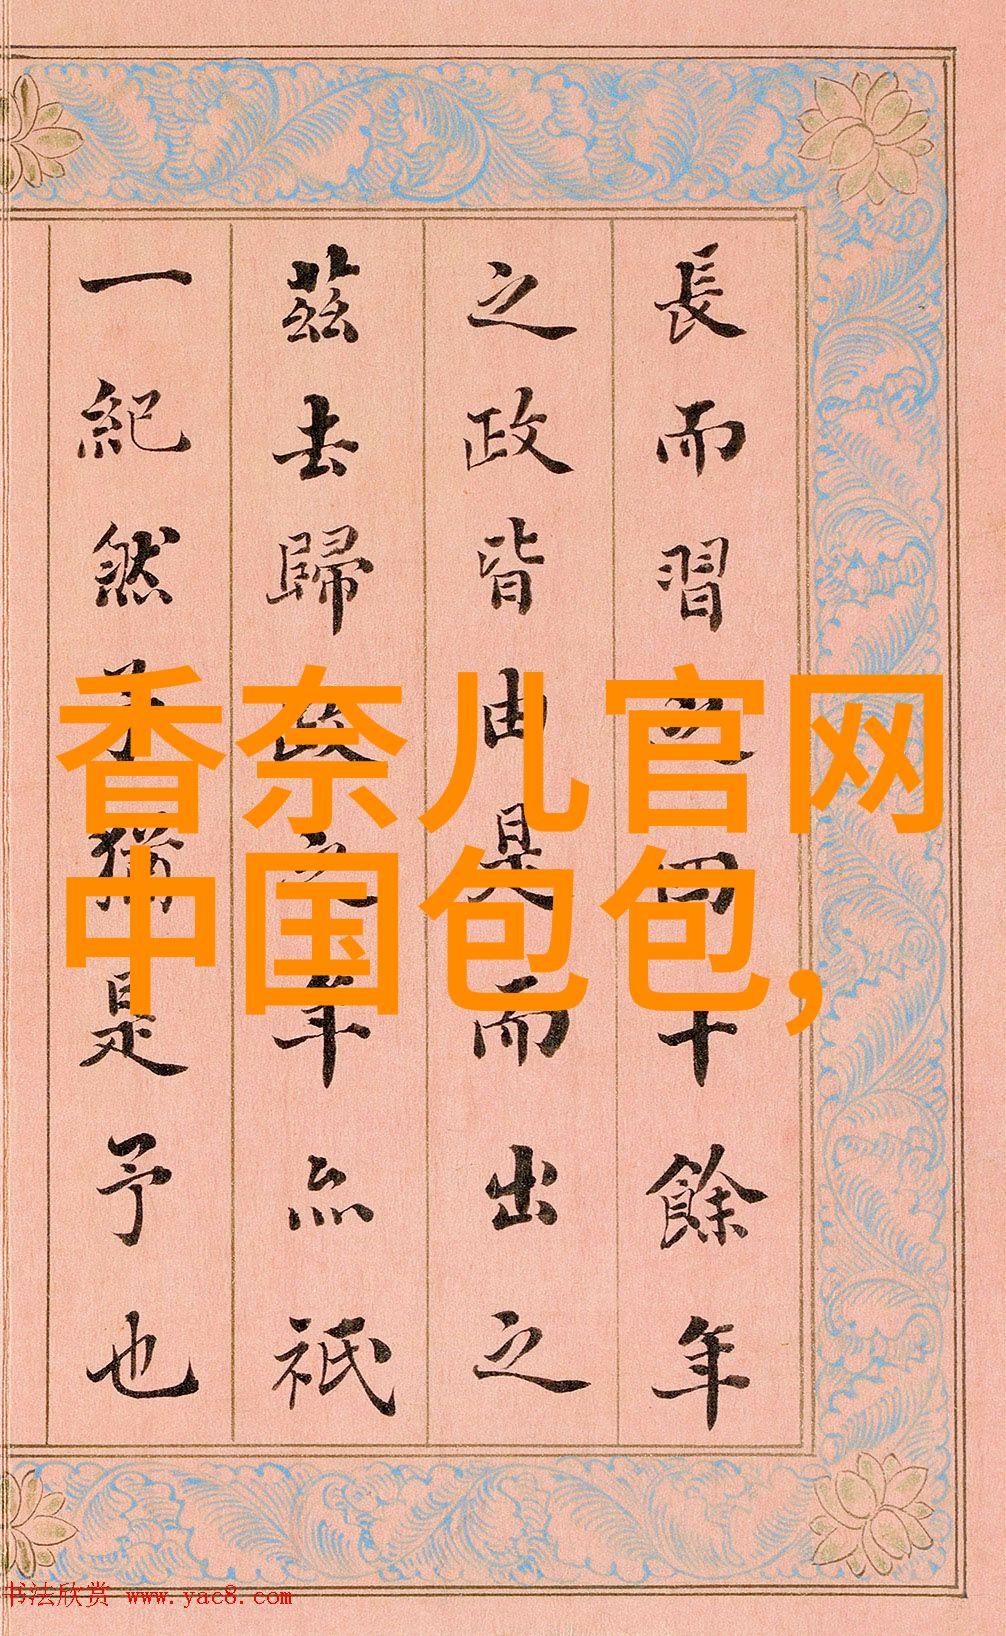 長而習之四十餘年
之政皆由是而出之
茲去歸政之年亦祇
一紀然予猶是予也
香奈儿官网
中国包包,
书法欣赏 www.yac8.com